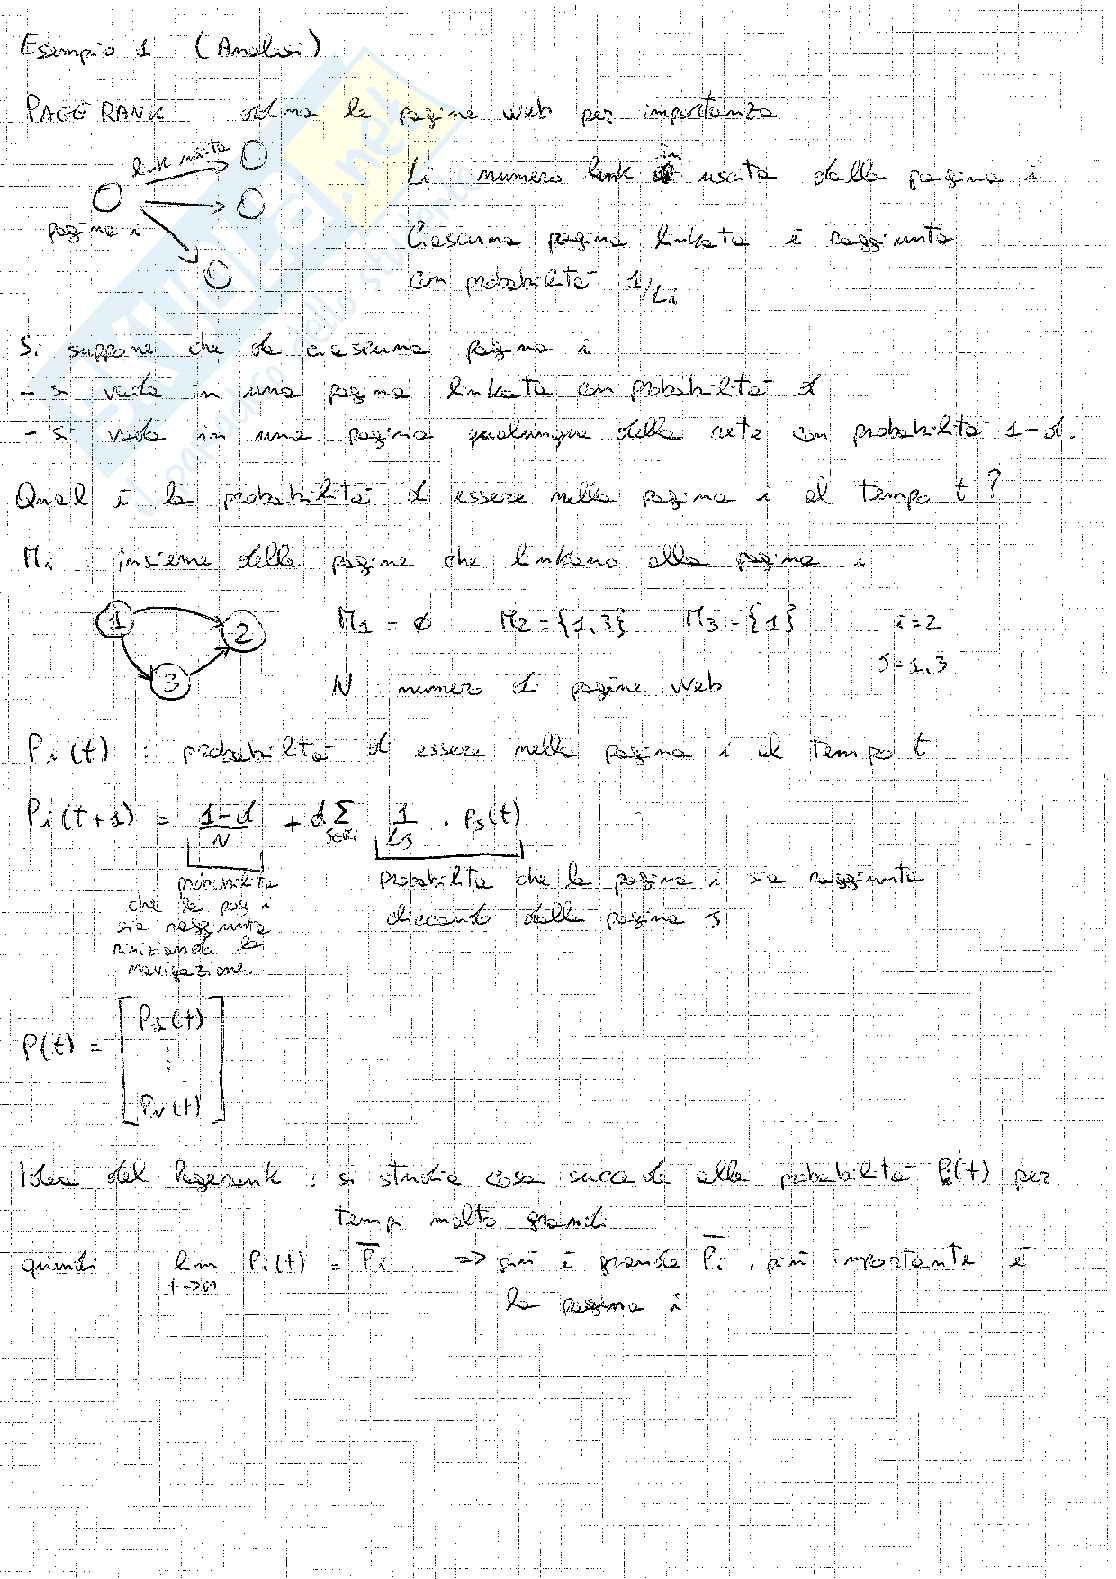 Esempio 1 (Analisi)
PAGE RANK ordina le pagine web per importanza
link uscita
pagina i
Li numero link in uscita dalla pagina i
Ciascuna pagina linkata è raggiunta
con probabilità 1/Li
Si suppone che da ciascuna pagina i
- si vada in una pagina linkata con probabilità d
- si vada in una pagina qualunque della rete con probabilità 1-d.
Qual è la probabilità di essere nella pagina i al tempo t?
Mi insieme delle pagine che linkano alla pagina i
1 2 3
M1 = ∅ M2 = {1,3} M3 = {1} i=2
J=1,3
N numero di pagine web
Pi(t) : probabilità di essere nella pagina i al tempo t
Pi(t+1) = (1-d)/N + d Σ J∈Mi 1/LJ · PJ(t)
probabilità
che la pag i
sia raggiunta
riniziando la
navigazione
probabilità che la pagina i sia raggiunta
cliccando dalla pagina J
P(t) = [P1(t)
⋮
PN(t)]
Idea del Pagerank : si studia cosa succede alla probabilità Pi(t) per
tempi molto grandi
quindi lim t→∞ Pi(t) = P̄i => più è grande P̄i, più importante è
la pagina i